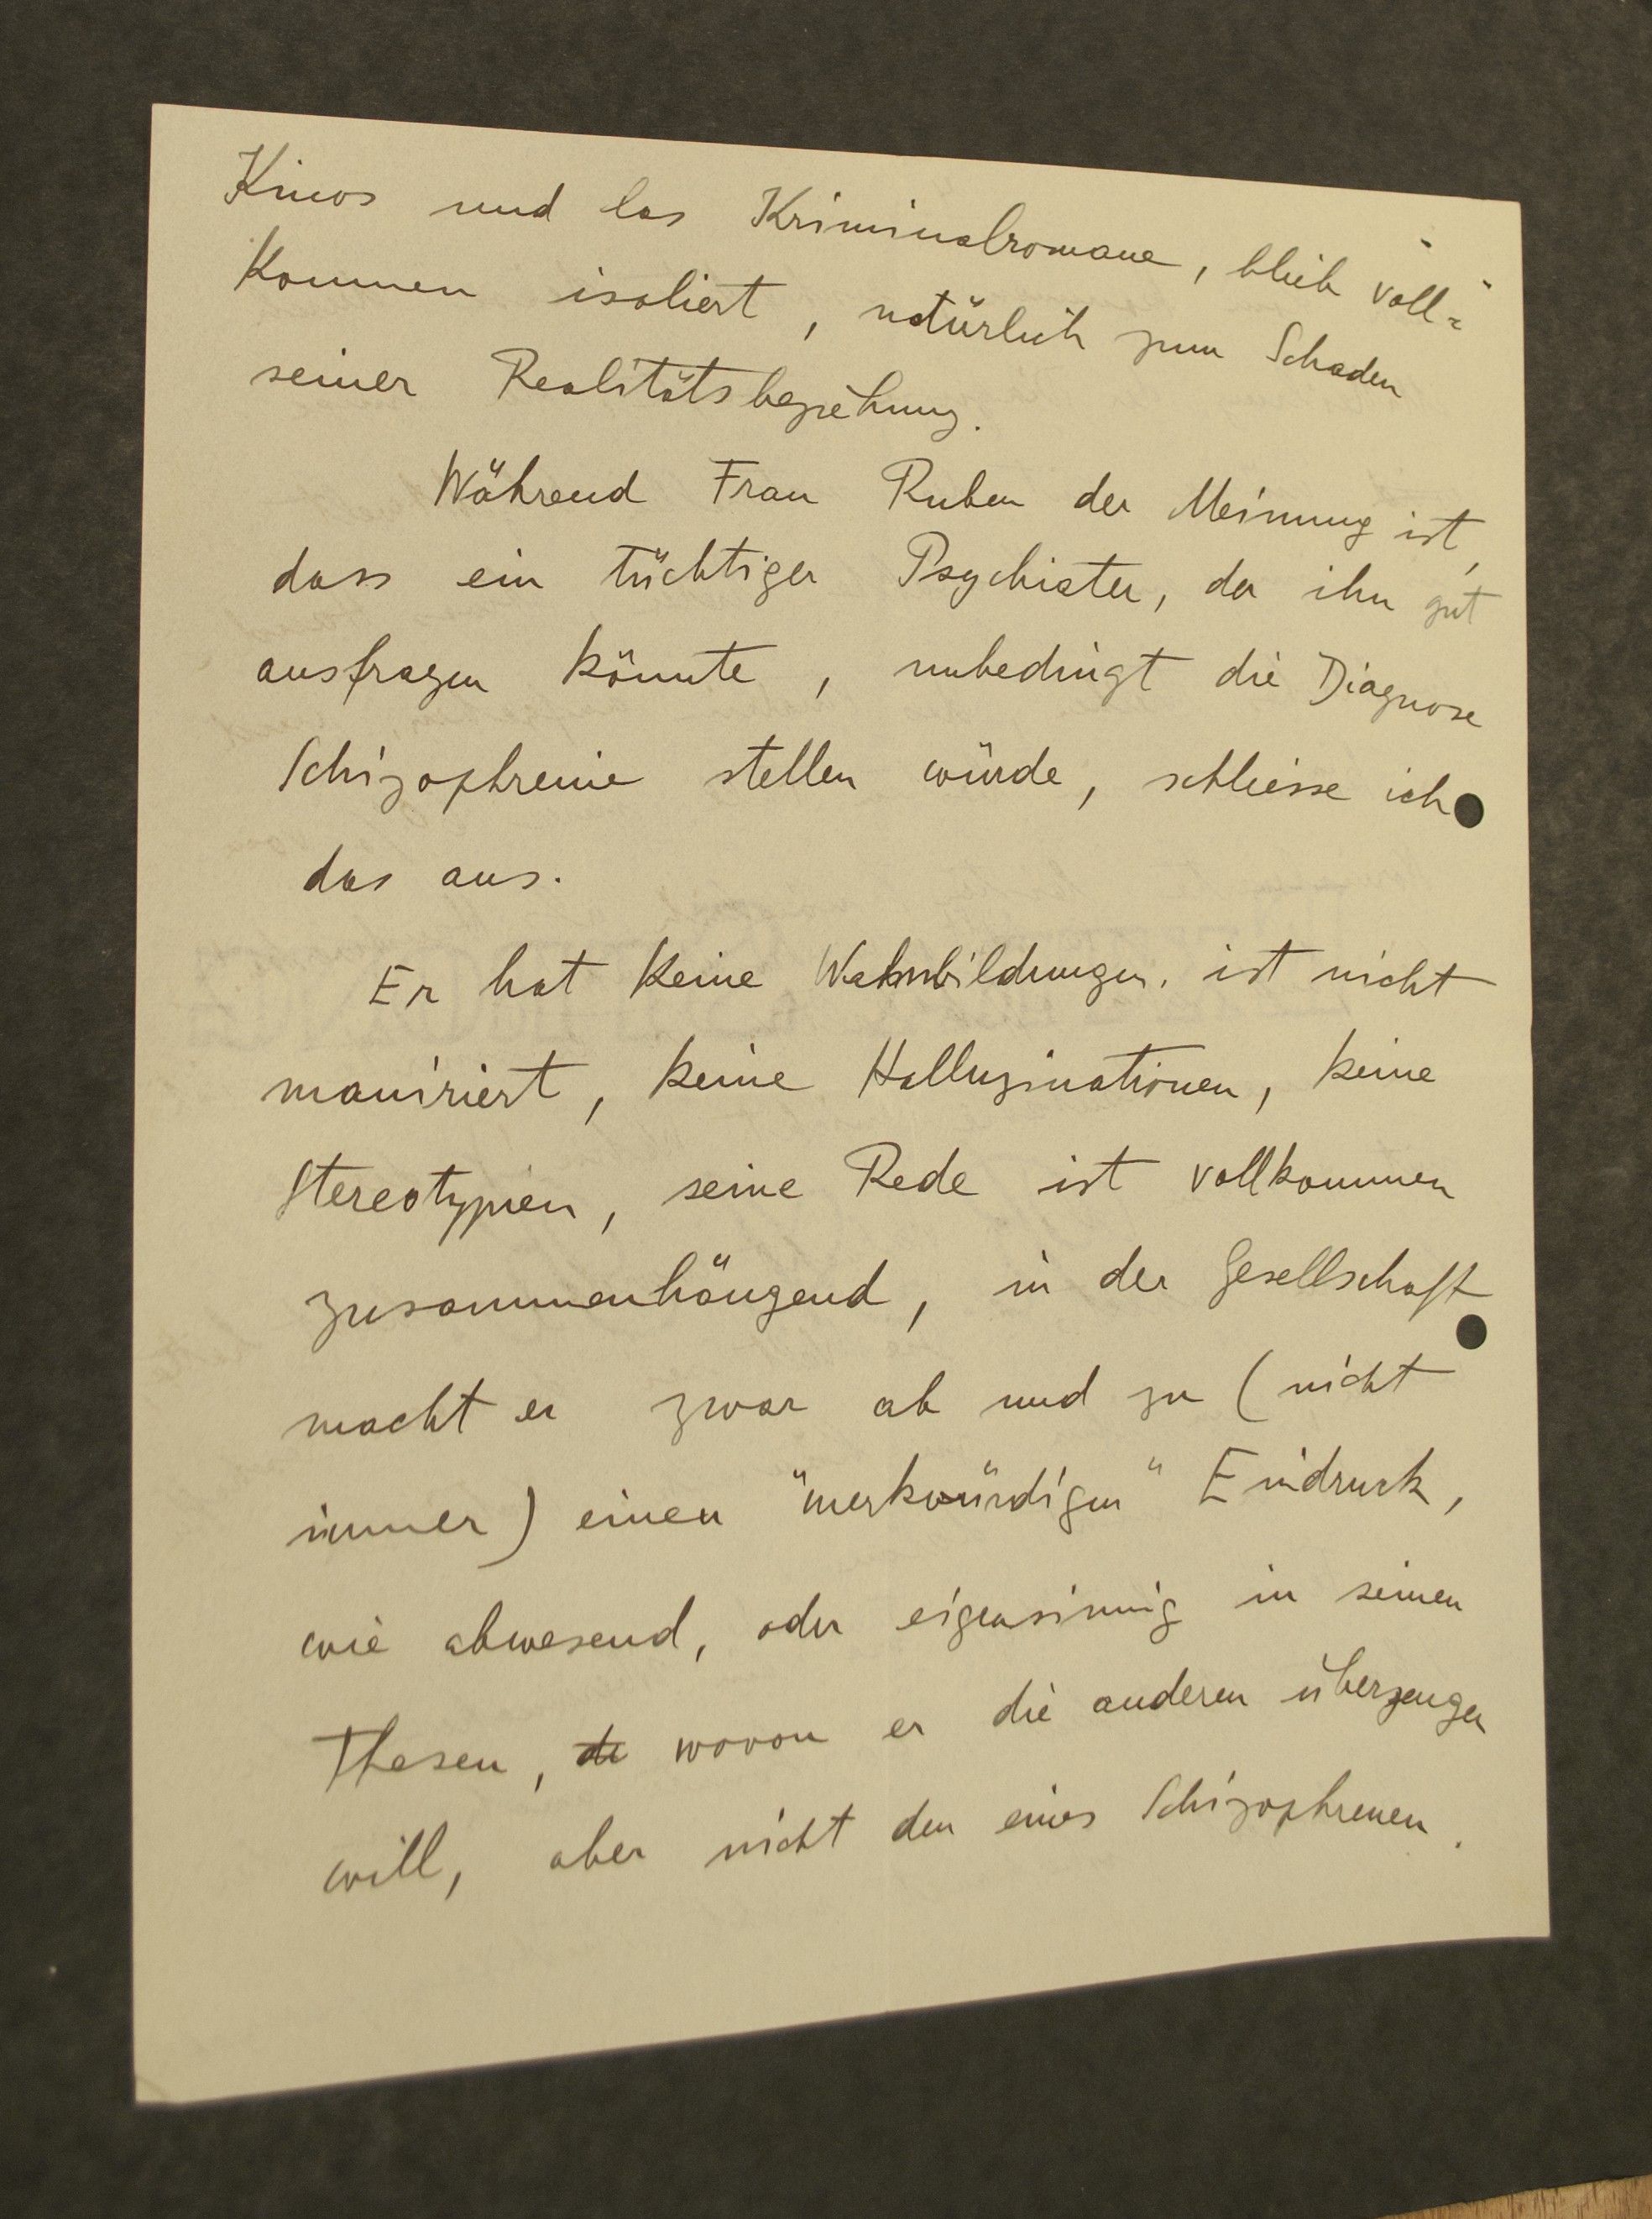 Kinos und las Kriminalromane, blieb voll=
kommen isoliert, natürlich zum Schaden
seiner Realitätsbeziehung.
Während Frau Ruben der Meinung ist,
dass ein tüchtiger Psychiater, der ihn gut
ausfragen könnte, unbedingt die Diagnose
Schizophrenie stellen würde, schliesse ich
das aus.
Er hat keine Wahnbildungen, ist nicht
maniriert, keine Halluzinationen, keine
Stereotypien, seine Rede ist vollkommen
zusammenhängend, in der Gesellschaft
macht er zwar ab und zu (nicht
immer) einen "merkwürdigen" Eindruck,
wie abwesend, oder eigensinnig in seinen
Thesen, de wovon er die anderen überzeugen
will, aber nicht den eines Schizophrenen.